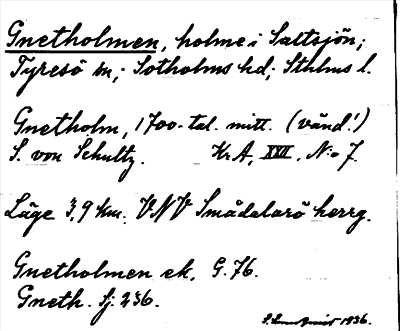 Gnetholmen, holme i Saltsjön;
Tyresö sn; Sotholms hd; Sthlms l.
Gnetholm, 1700-tal. mitt. (vänd!)
S. von Schultz. Kr A, XXII, No 7.
Läge 3,9 km. VNV Smådalarö herrg.
Gnetholmen ek. G. 76.
Gneth. fj. 236.
1936.